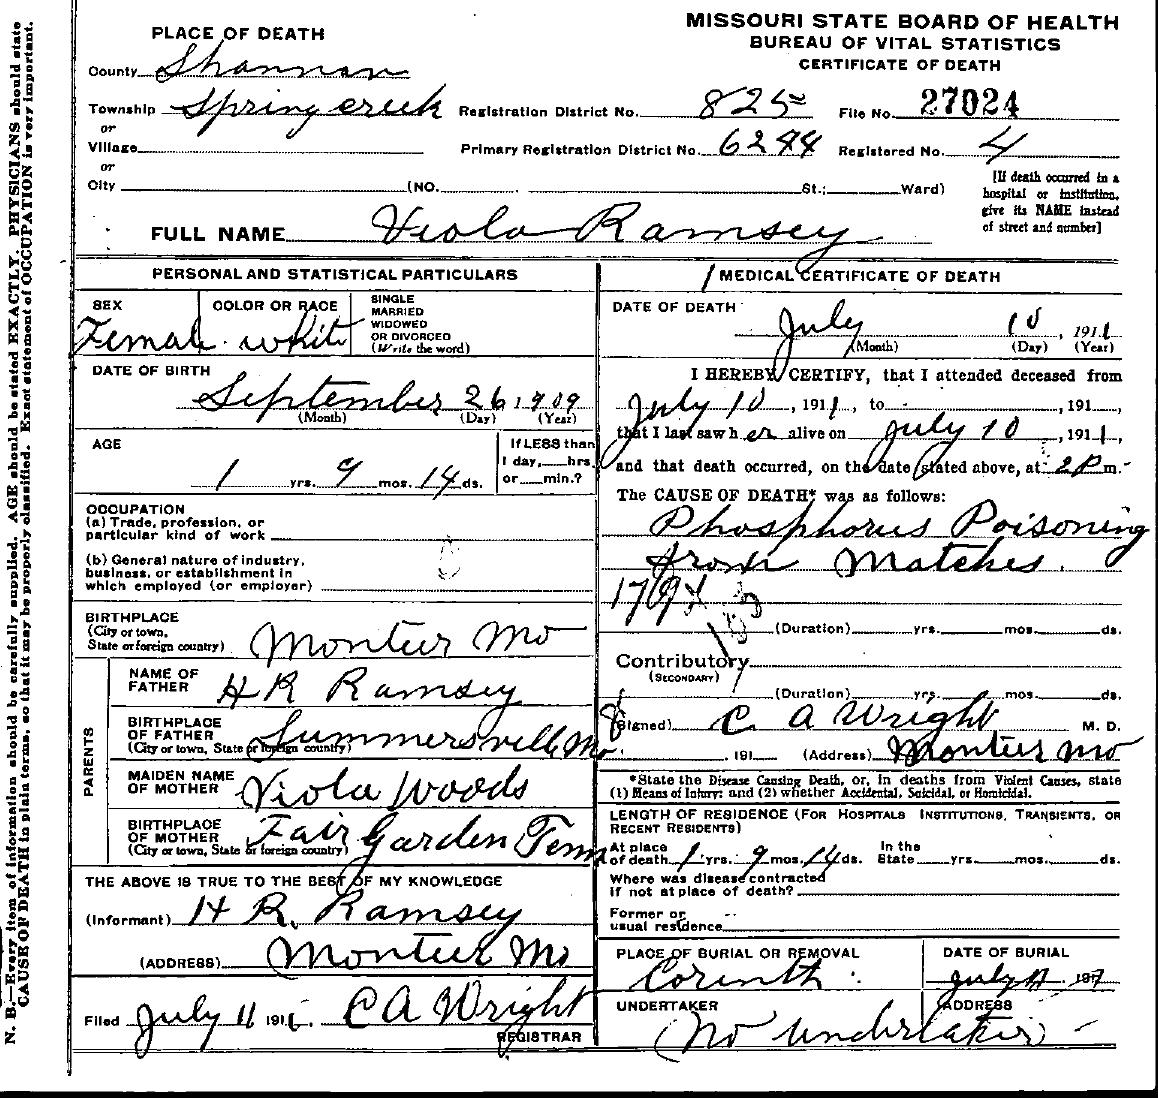 MISSOURI STATE BOARD OF HEALTH
BUREAU OF VITAL STATISTICS
CERTIFICATE OF DEATH
PLACE OF DEATH
County Shannon
Township Spring creek Registration District No. 825 File No. 27024
or
Village Primary Registration District No. 6244 Registered No. 4
or
City (NO. St.; Ward)
[If death occurred in a
hospital or institution,
give its NAME instead
of street and number]
FULL NAME Viola Ramsey
PERSONAL AND STATISTICAL PARTICULARS
SEX Female
COLOR OR RACE white
SINGLE
MARRIED
WIDOWED
OR DIVORCED
(Write the word)
DATE OF BIRTH
September 26, 1909
(Month) (Day) (Year)
AGE
1 yrs. 9 mos. 14 ds.
If LESS than
1 day, hrs.
or min.?
OCCUPATION
(a) Trade, profession, or
particular kind of work
(b) General nature of industry,
business, or establishment in
which employed (or employer)
BIRTHPLACE
(City or town,
State or foreign country) Monteer Mo
PARENTS
NAME OF
FATHER H R Ramsey
BIRTHPLACE
OF FATHER
(City or town, State or foreign country) Summersville Mo
MAIDEN NAME
OF MOTHER Viola Woods
BIRTHPLACE
OF MOTHER
(City or town, State or foreign country) Fair Garden Tenn
THE ABOVE IS TRUE TO THE BEST OF MY KNOWLEDGE
(Informant) H R. Ramsey
(ADDRESS) Monteer Mo
Filed July 11 1911. C A Wright
REGISTRAR
MEDICAL CERTIFICATE OF DEATH
DATE OF DEATH
July 10, 1911
(Month) (Day) (Year)
I HEREBY CERTIFY, that I attended deceased from
July 10, 1911, to , 191 ,
that I last saw her alive on July 10, 1911,
and that death occurred, on the date stated above, at 2 P m.
The CAUSE OF DEATH* was as follows:
Phosphorus Poisoning
from Matches.
(Duration) yrs. mos. ds.
Contributory
(SECONDARY)
(Duration) yrs. mos. ds.
(Signed) C A Wright M. D.
, 191 (Address) Monteer Mo
*State the Disease Causing Death, or, in deaths from Violent Causes, state
(1) Means of Injury; and (2) whether Accidental, Suicidal, or Homicidal.
LENGTH OF RESIDENCE (FOR HOSPITALS INSTITUTIONS, TRANSIENTS, OR
RECENT RESIDENTS)
At place
of death 1 yrs. 9 mos. 14 ds. In the
State yrs. mos. ds.
Where was disease contracted
if not at place of death?
Former or
usual residence
PLACE OF BURIAL OR REMOVAL
Corinth
DATE OF BURIAL
July 11 191
UNDERTAKER
No undertaker
ADDRESS
N. B.—Every item of information should be carefully supplied. AGE should be stated EXACTLY. PHYSICIANS should state
CAUSE OF DEATH in plain terms, so that it may be properly classified. Exact statement of OCCUPATION is very important.